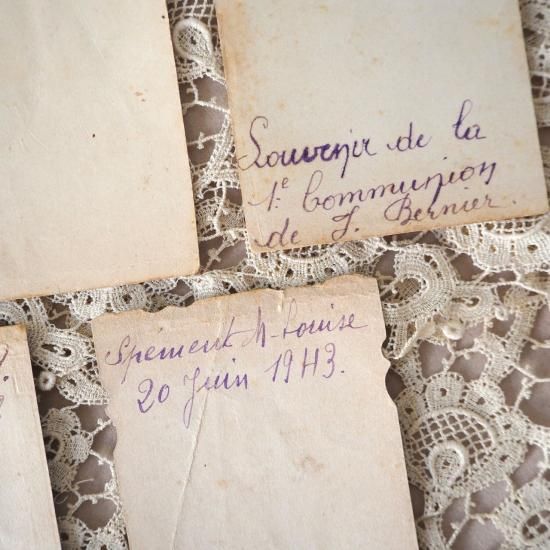 Souvenir de la
1.e Communion
de J. Bernier.
M-Louise
20 Juin 1943.